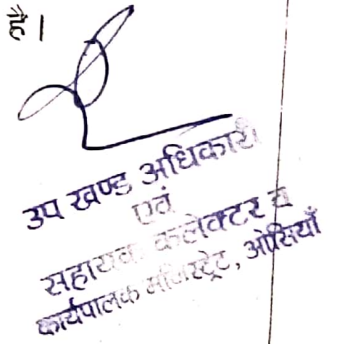 है।
उप खण्ड अधिकारी
एवं
सहायक कलेक्टर व
कार्यपालक मजिस्ट्रेट, ओसियाँ